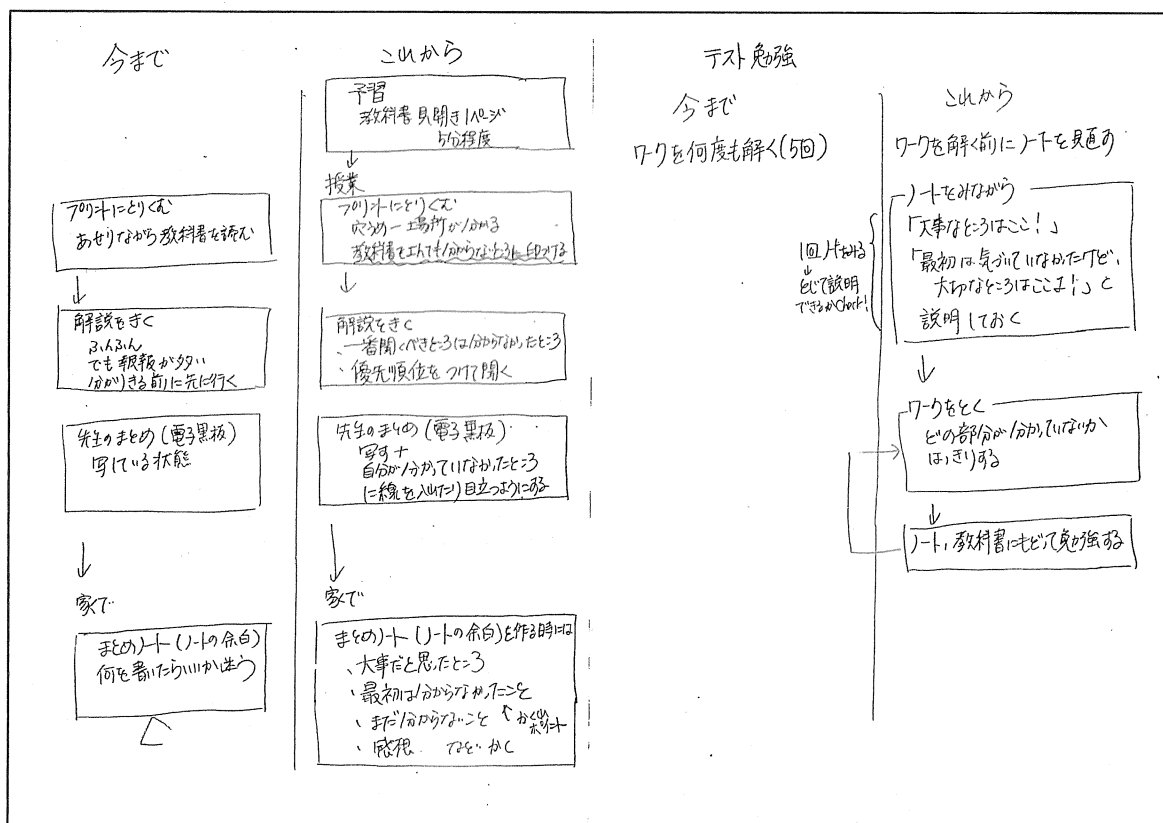 今まで
プリントにとりくむ
あせりながら教科書を読む
↓
解説をきく
ふんふん
でも報報が多い
分かりきる前に先に行く
先生のまとめ(電子黒板)
写している状態
↓
家で
まとめノート(ノートの余白)
何を書いたらいいか迷う
これから
予習
教科書見開き1ページ
5分程度
↓
授業
プリントにとりくむ
穴うめ→場所が分かる
教科書をよんでも分からないところに印つける
↓
解説をきく
、一番聞くべきところは分からなかったところ
、優先順位をつけて聞く
先生のまとめ(電子黒板)
写す+
自分が分かっていなかったところ
に線を入れたり目立つようにする
↓
家で
まとめノート(ノートの余白)を作る時には
、大事だと思ったところ
、最初は分からなかったこと
、まだ分からないこと ↑
ポイント
、感想 などかく
テスト勉強
今まで
ワークを何度も解く(5回)
これから
ワークを解く前にノートを見直す
ノートをみながら
「大事なところはここ!」
「最初は気づいていなかったけど、
大切なところはここよ!」と
説明しておく
1回ノートをみる
↓
とじて説明
できるかCheck!
↓
ワークをとく
どの部分が分かっていないか
はっきりする
↓
ノート、教科書にもどって勉強する